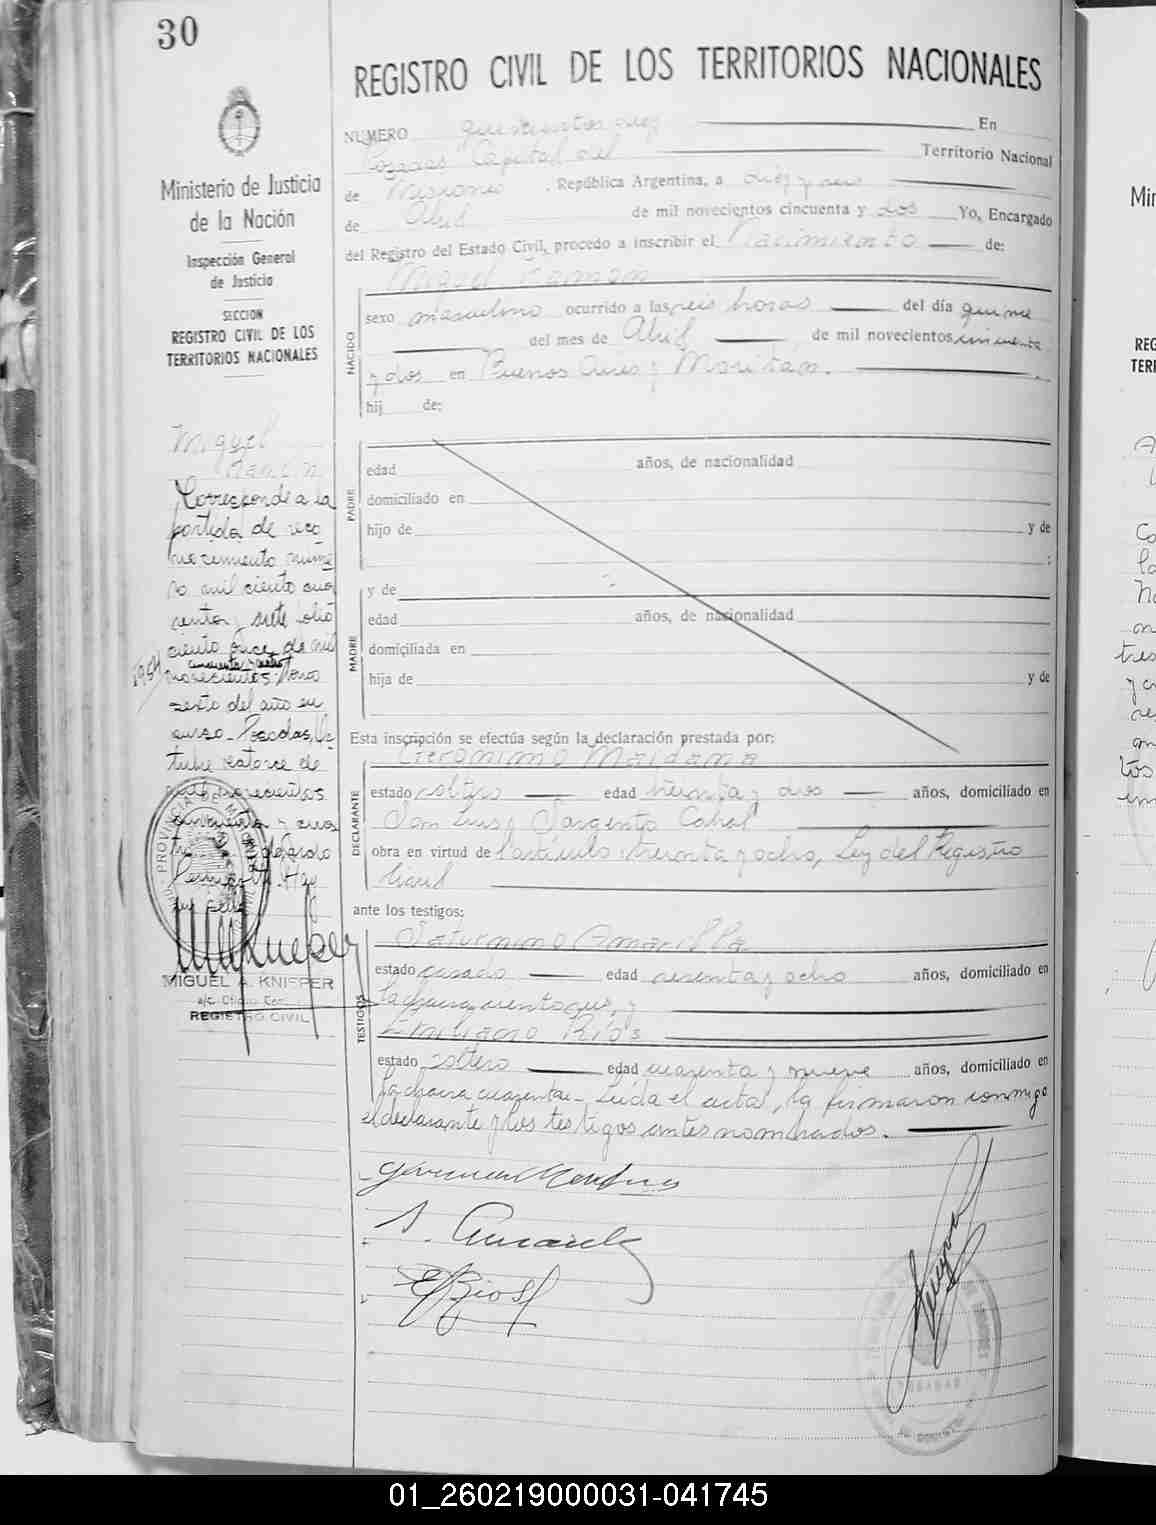 30
REGISTRO CIVIL DE LOS TERRITORIOS NACIONALES
Ministerio de Justicia
de la Nación
Inspección General
de Justicia
SECCION
REGISTRO CIVIL DE LOS
TERRITORIOS NACIONALES
NUMERO En
Posadas Capital del Territorio Nacional
de Misiones, República Argentina, a diez y seis
de Abril de mil novecientos cincuenta y dos Yo, Encargado
del Registro del Estado Civil, procedo a inscribir el Nacimiento de:
NACIDO
Miguel Ramón
sexo masculino ocurrido a las seis horas del día quince
del mes de Abril de mil novecientos cincuenta
y dos en Buenos Aires y
hij de:
PADRE
edad años, de nacionalidad
domiciliado en
hijo de y de
:
MADRE
y de
edad años, de nacionalidad
domiciliada en
hija de y de
Esta inscripción se efectúa según la declaración prestada por:
DECLARANTE
Gerónimo Maidana
estado soltero edad treinta y dos años, domiciliado en
San Luis y Sargento Cabral
obra en virtud de l'artículo treinta y ocho, Ley del Registro
Civil
ante los testigos:
TESTIGOS
Saturnino Amarilla
estado casado edad sesenta y ocho años, domiciliado en
la chacra y
Emiliano Ríos
estado soltero edad cuarenta y nueve años, domiciliado en
la chacra cuarenta.- Leída el acta, la firmaron conmigo
el declarante y los testigos antes nombrados.
S. Amarilla
E Rios
Miguel
Ramón
Corresponde a la
partida de reco
nocimiento núme
ro mil ciento cua
renta y siete folio
ciento once de mil
novecientos cincuenta y cuatro tomo
sexto del año en
curso.- Posadas, Oc
tubre catorce de
mil novecientos
cincuenta y cua
tro
1954
PROVINCIA DE MISIONES
MIGUEL A. KNIEPER
REGISTRO CIVIL
POSADAS
01_260219000031-041745